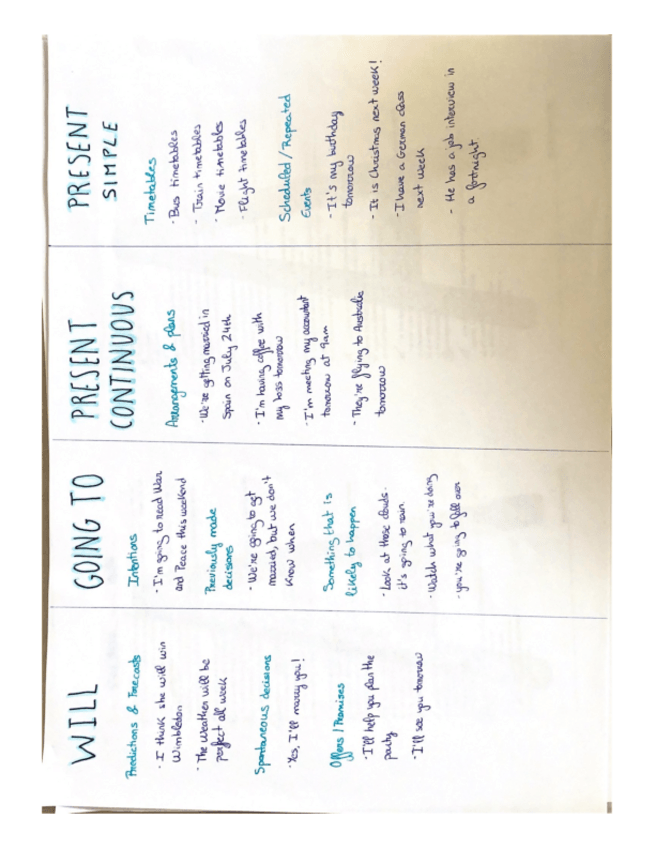 WILL
Predictions & Forecasts
· I think she will win
Wimbledon
· The weather will be
perfect all week
Spontaneous decisions
· Yes, I'll marry you!
Offers / Promises
· I'll help you plan the
party
· I'll see you tomorrow
GOING TO
Intentions
· I'm going to read War
and Peace this weekend
Previously made
decisions
· We're going to get
married, but we don't
know when
Something that is
likely to happen
· Look at those clouds.
it's going to rain.
· Watch what you're doing
- you're going to fall over
PRESENT
CONTINUOUS
Arrangements & plans
· We're getting married in
Spain on July 24th
· I'm having coffee with
my boss tomorrow
· I'm meeting my accountant
tomorrow at 9am
· They're flying to Australia
tomorrow
PRESENT
SIMPLE
Timetables
· Bus timetables
- Train timetables
· Movie timetables
· Flight timetables
Scheduled / Repeated
Events
- It's my birthday
tomorrow
- It is Christmas next week!
- I have a German class
next week
- He has a job interview in
a fortnight.